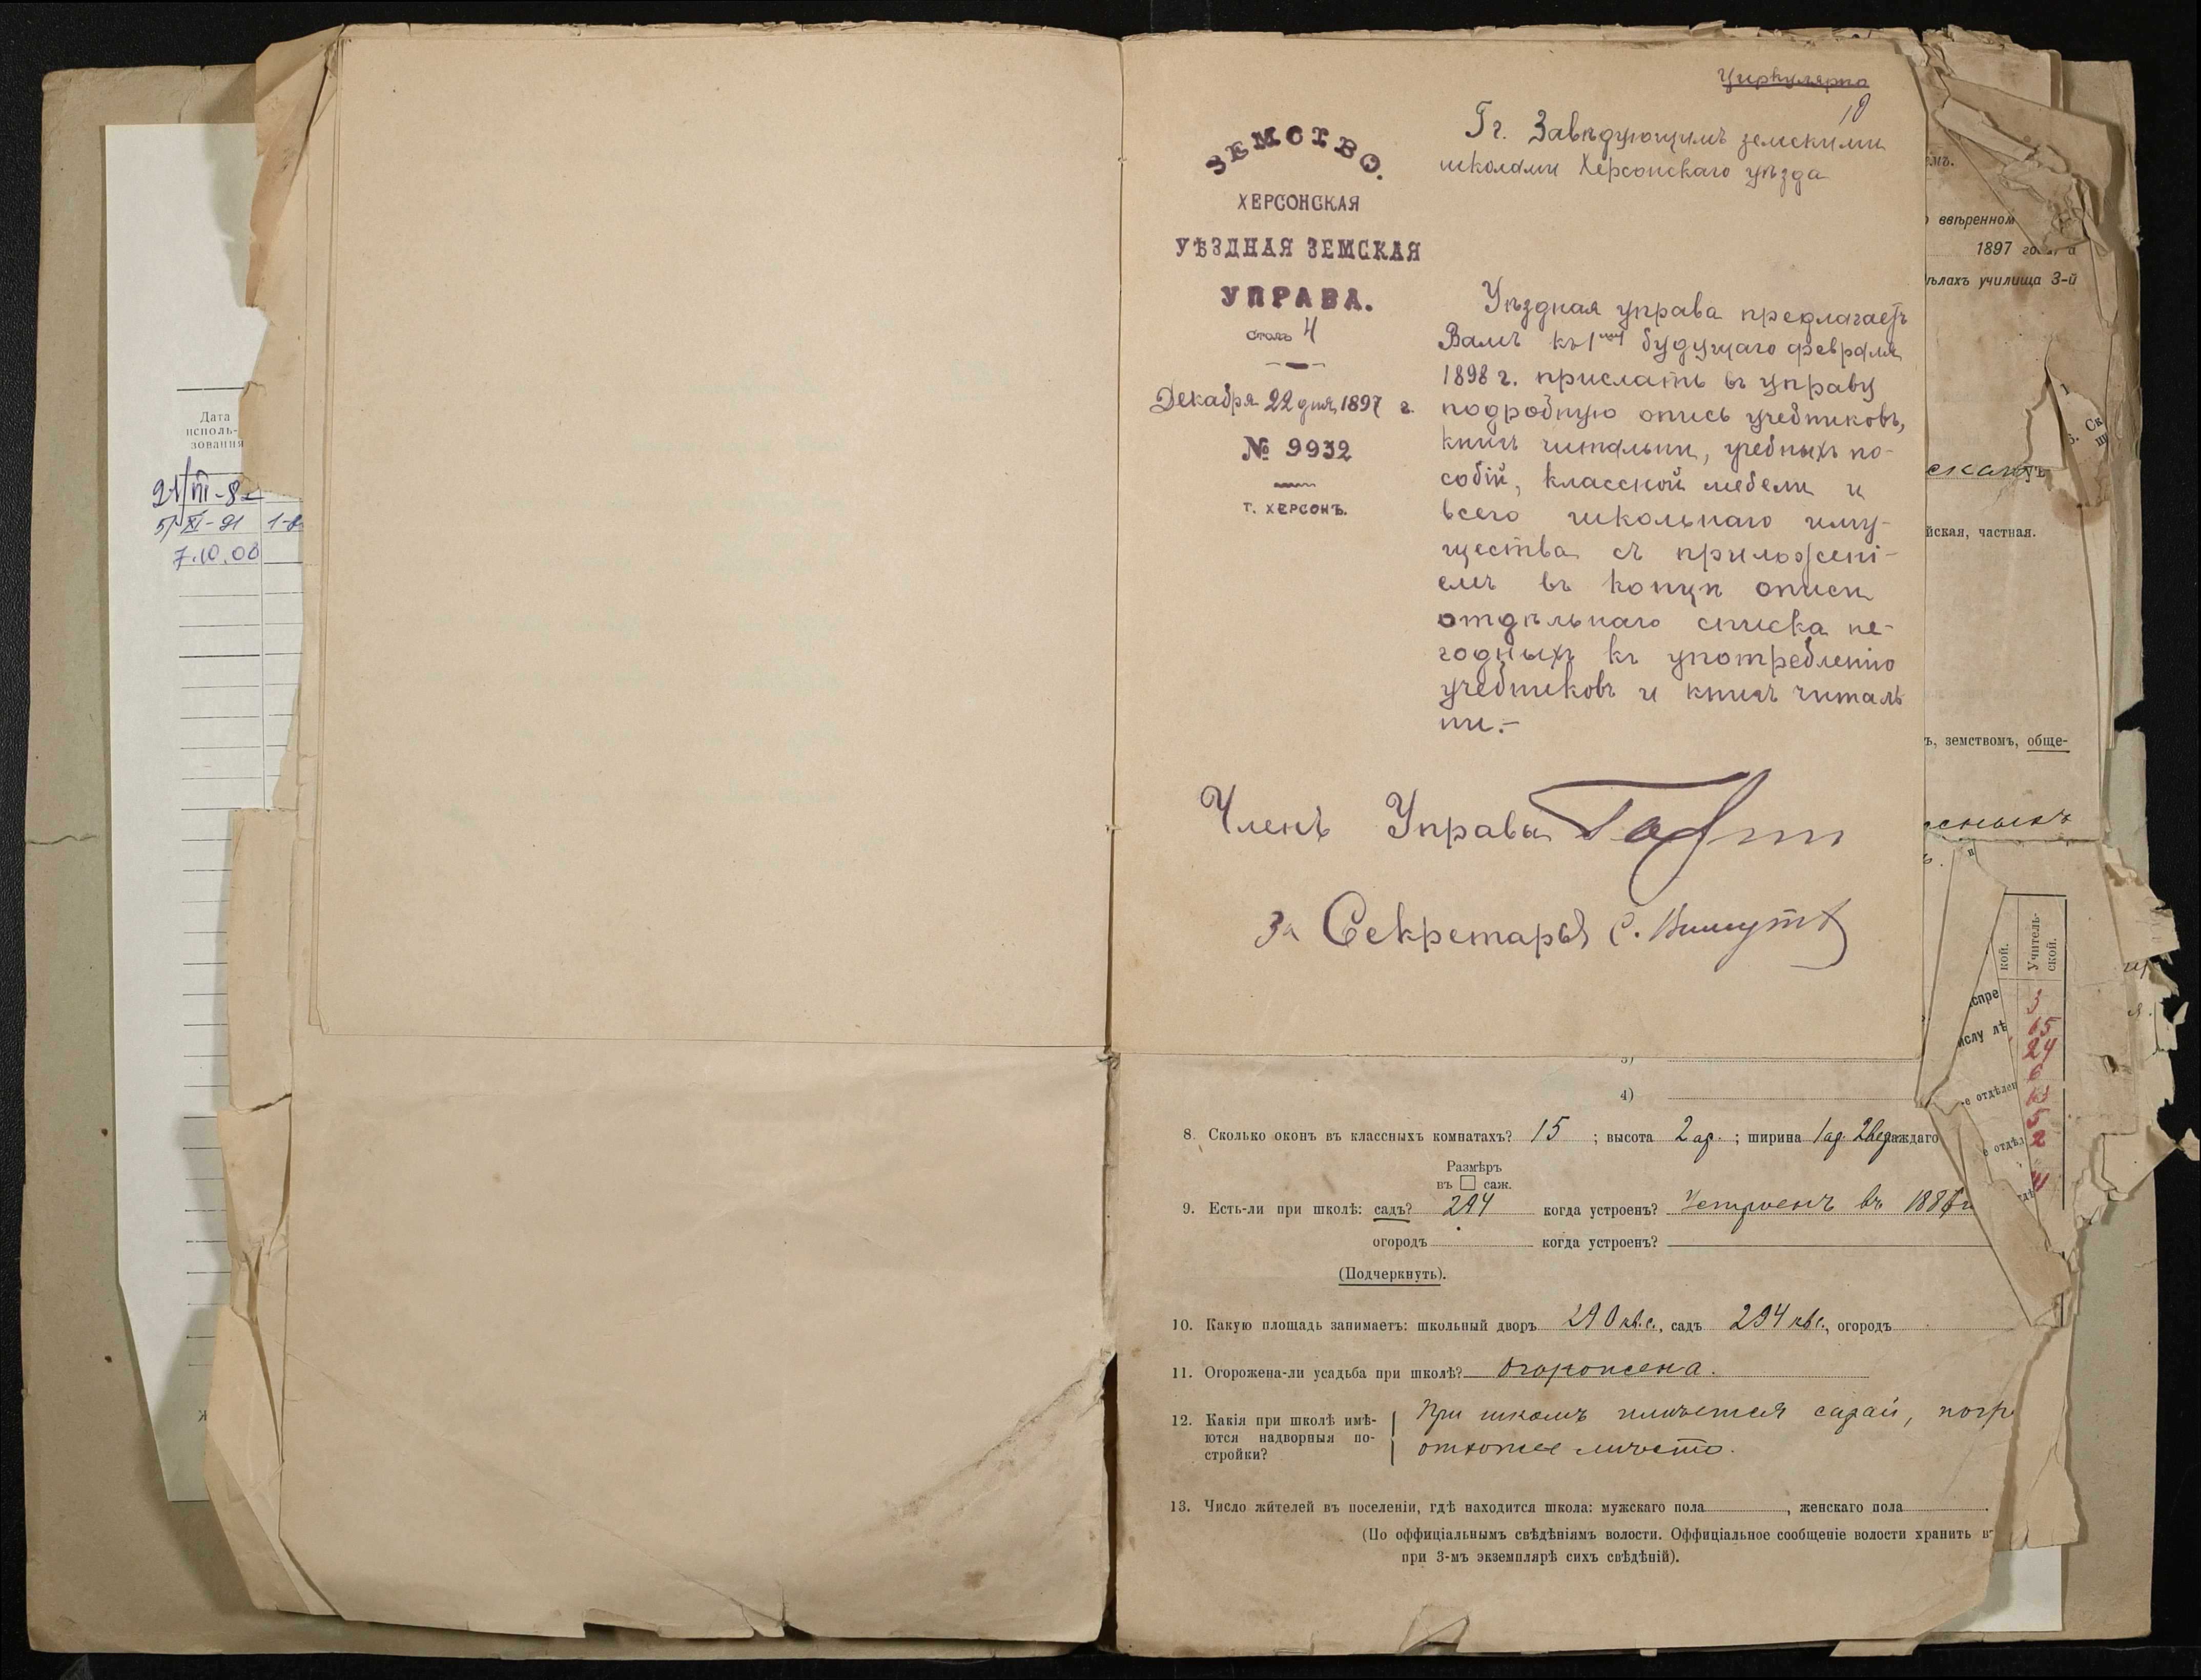 Дата
исполь-
зования
5/XI-91
7.10.00
Циркулярно
Гг. Завѣдующимъ земскими
школами Херсонскаго уѣзда
ЗЕМСТВО.
ХЕРСОНСКАЯ
УѢЗДНАЯ ЗЕМСКАЯ
УПРАВА.
Столъ 4
Декабря 22 дня 1897 г.
№ 9932
Г. ХЕРСОНЪ.
Уѣздная управа предлагаетъ
Вамъ къ 1му будущаго февраля
1898 г. прислать въ управу
подробную опись учебниковъ,
книгъ читальни, учебныхъ по-
собій, классной мебели и
всего школьнаго иму-
щества съ приложені-
емъ въ концѣ описи
отдѣльнаго списка не-
годныхъ къ употребленію
учебниковъ и книгъ читаль
ни.-
Членъ Управы
За Секретаря С.
емъ.
ввѣренном
1897
ѣлахъ училища 3-й
йская, частная.
ъ, земствомъ, обще-
кой.
Учитель-
ской.
3
15
24
6
5
2
4
3)
4)
8. Сколько оконъ въ классныхъ комнатахъ? 15 ; высота 2 ар. ; ширина 1 ар. 2 вер каждаго
Размѣръ
въ □ саж.
9. Есть-ли при школѣ: садъ? 294 когда устроенъ? Устроенъ въ
огородъ когда устроенъ?
(Подчеркнуть).
10. Какую площадь занимаетъ: школьный дворъ 290 кв.с., садъ 294 кв.с., огородъ
11. Огорожена-ли усадьба при школѣ? Огорожена.
12. Какія при школѣ имѣ-
ются надворныя по-
стройки?
При школѣ имѣется сарай, погр
отхожее мѣсто.
13. Число жителей въ поселеніи, гдѣ находится школа: мужскаго пола , женскаго пола .
(По оффиціальнымъ свѣдѣніямъ волости. Оффиціальное сообщеніе волости хранить въ
при 3-мъ экземплярѣ сихъ свѣдѣній).